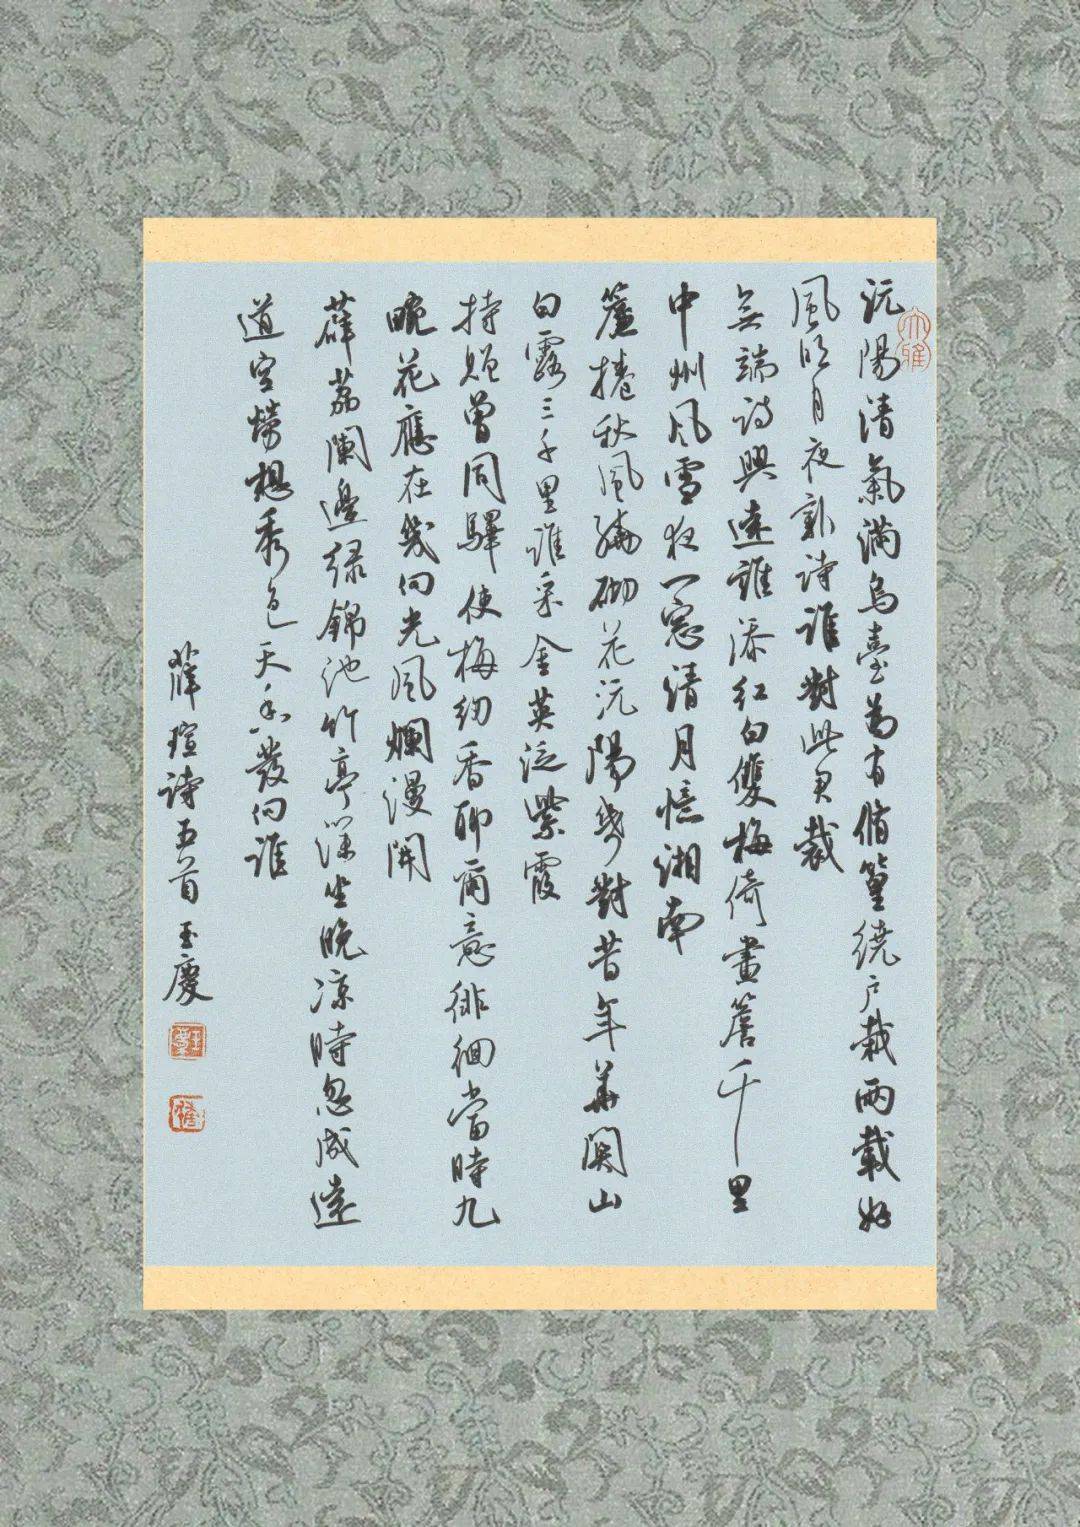 沅陽清氣滿烏臺為有脩篁繞户栽兩載好
風明月夜新詩誰對此君裁
無端詩興遠誰添紅白雙梅倚畫簷千里
中州風雪夜一窓清月憶湘南
簾捲秋風繞砌花沅陽幾對昔年華関山
白露三千里誰采金英泛紫霞
持贈曾同驛使梅紉香聊爾意徘徊當時九
畹花應在幾向光風爛漫開
薜荔闌邊緑錦池竹亭深坐晚涼時忽成遠
道空勞想秀色天香發向誰
薛瑄诗五首 玉慶
大雅